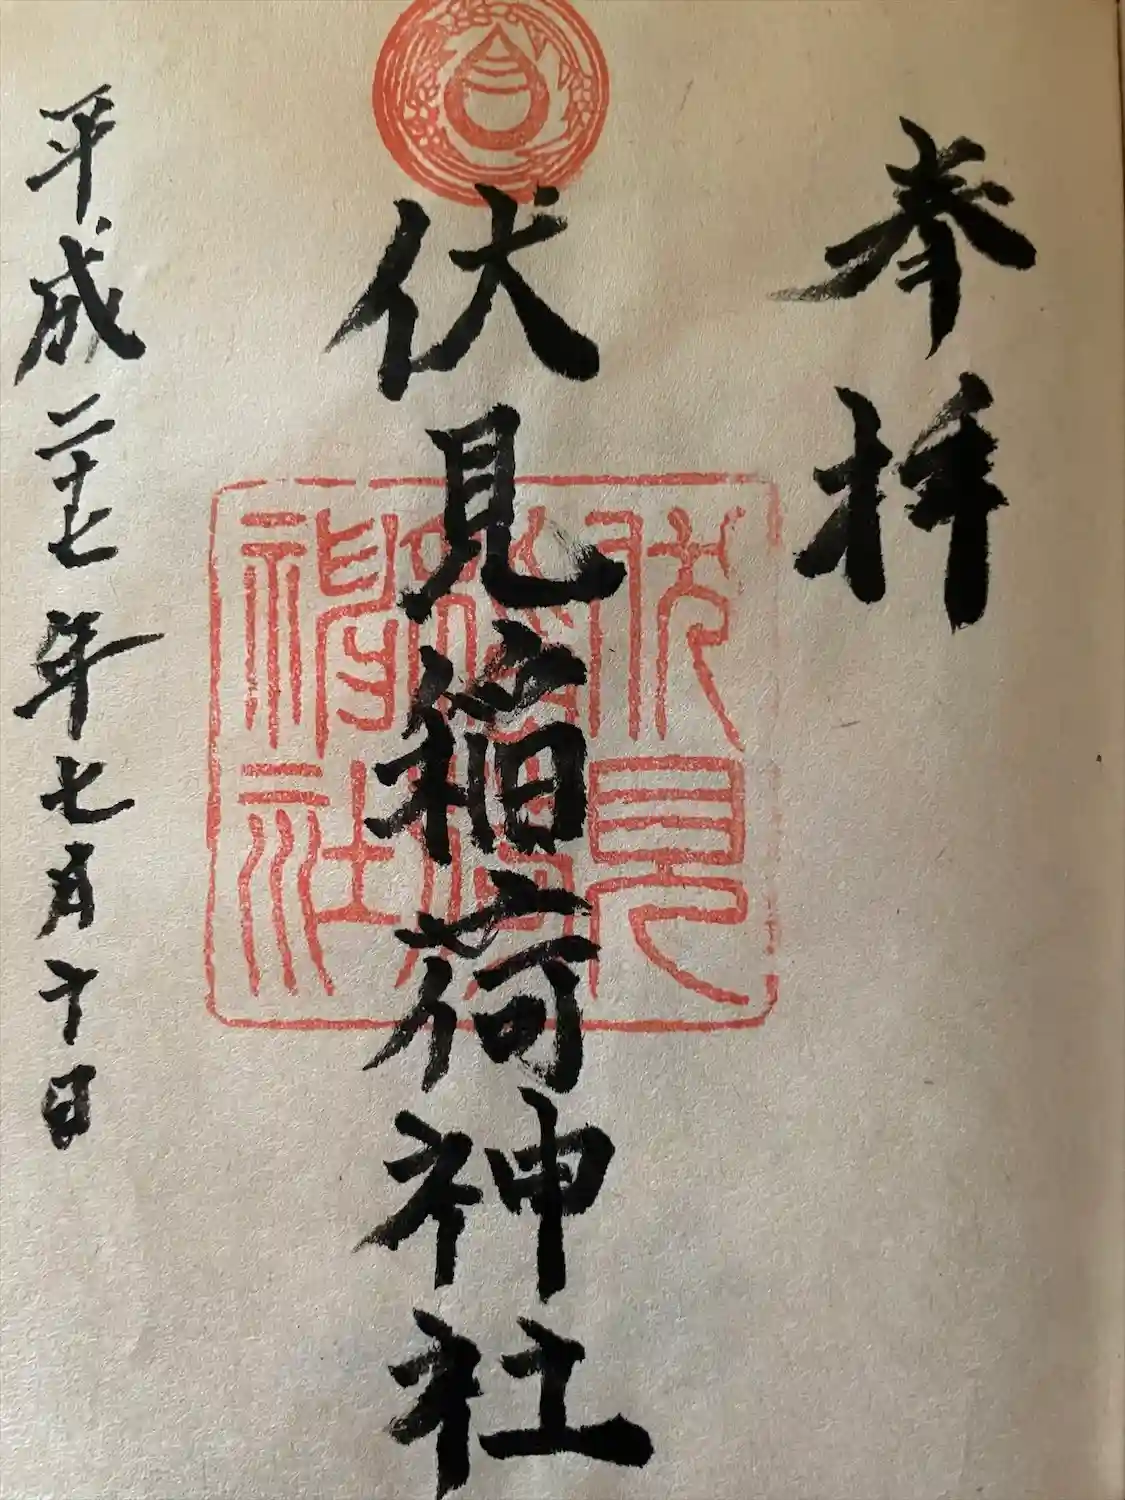 奉拝
伏見稲荷神社
伏見稲荷神社
平成二十七年七月十日